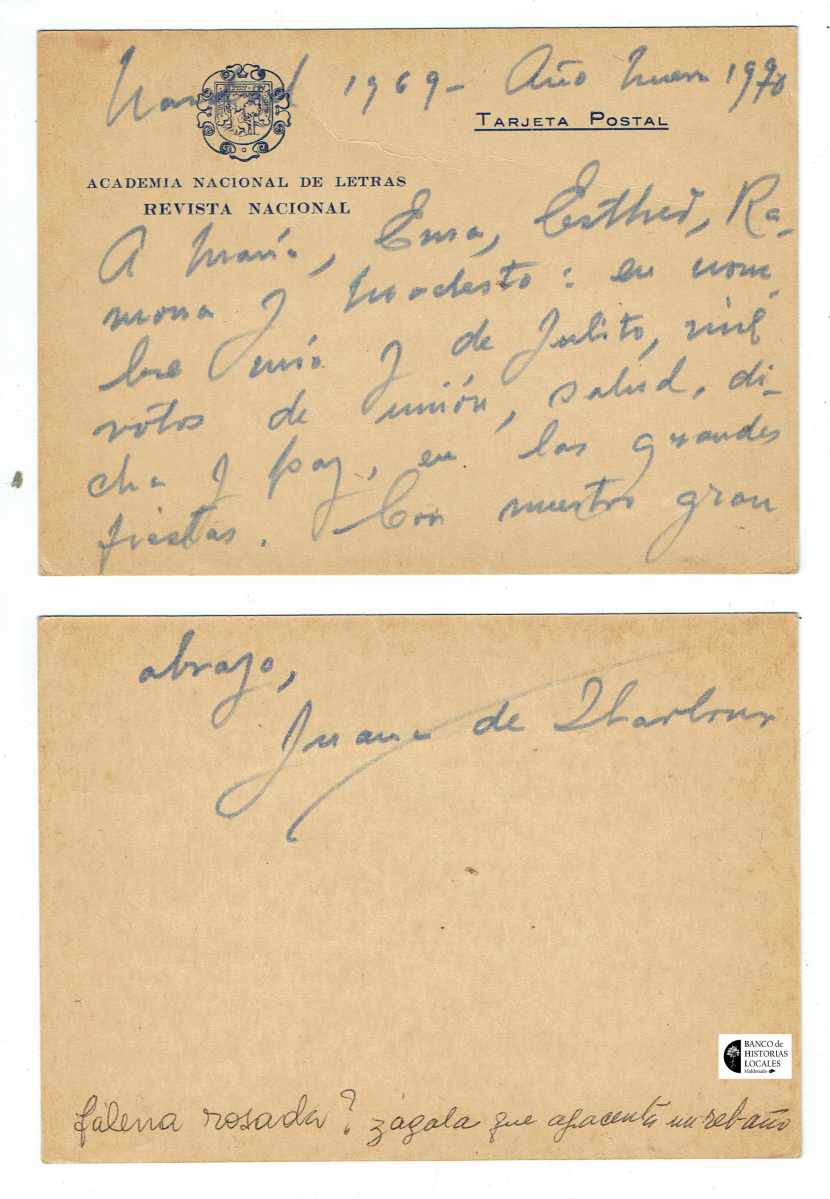 Navidad 1969 - Año Nuevo 1970
TARJETA POSTAL
ACADEMIA NACIONAL DE LETRAS
REVISTA NACIONAL
A María, Ema, Esther, Ra-
mona y Modesto: en nom-
bre mío y de Julito, mil
votos de unión, salud, di-
cha y paz, en las grandes
fiestas. Con nuestro gran
abrazo,
Juana de Ibarbourou
BANCO de
HISTORIAS
LOCALES
Maldonado
falena rosada? zágala que apacenta un rebaño